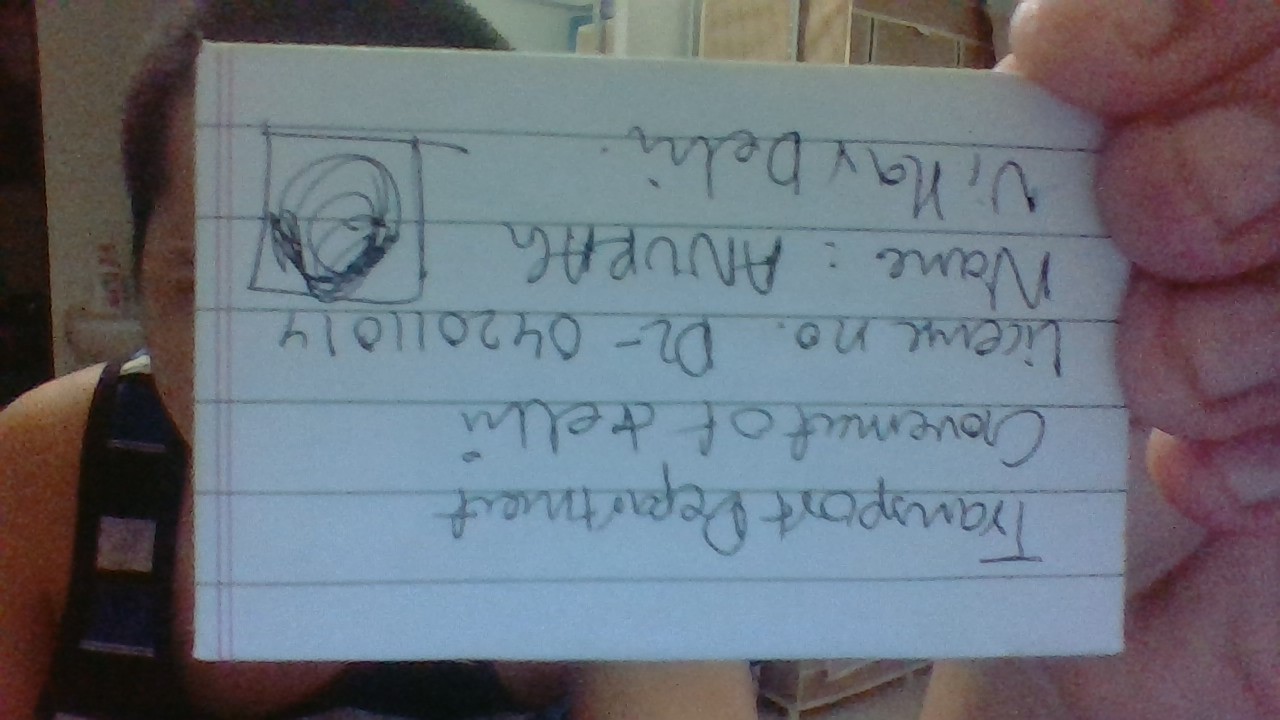 Transport Department
Government of delhi
License no. DL- 042011014
Name : ANURAG
Vinay Delhi.